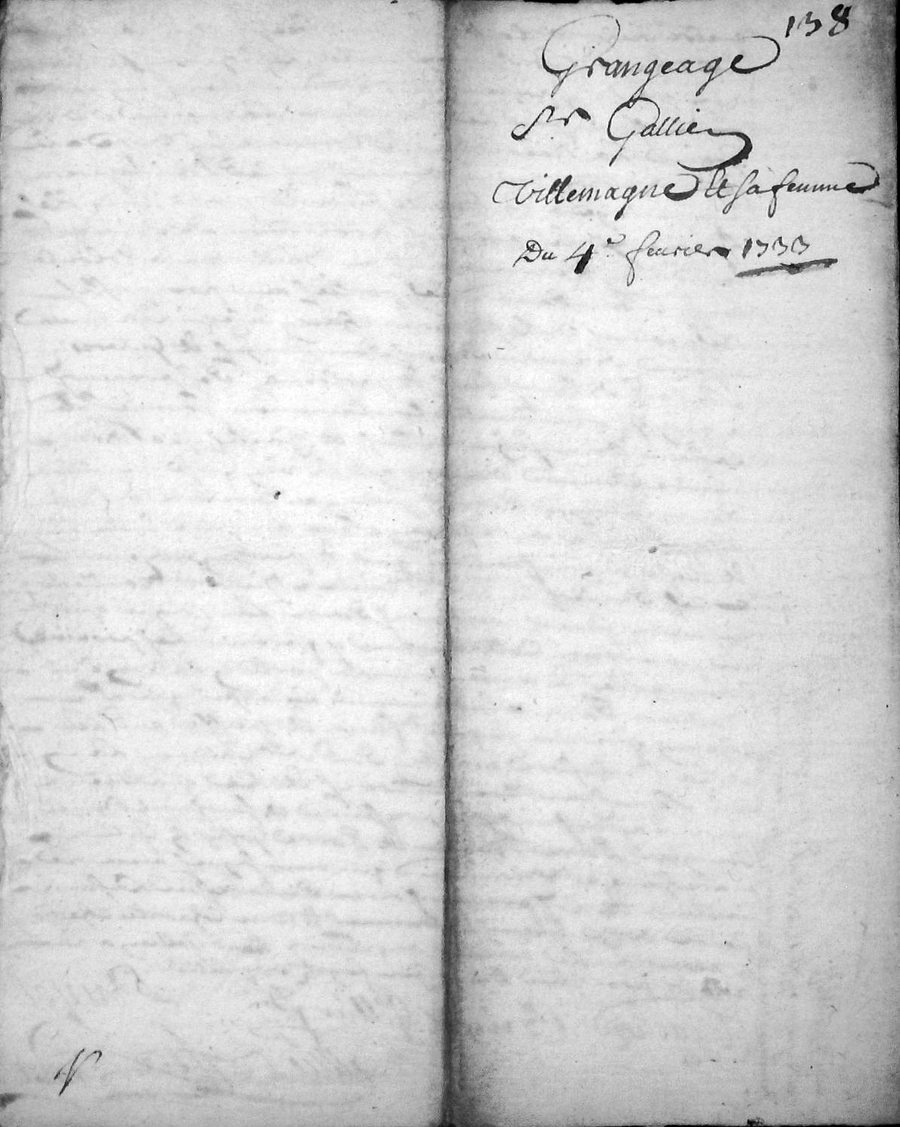 138
Grangeage
Sr Gallien
Villemagne et sa femme
Du 4e fevrier 1733